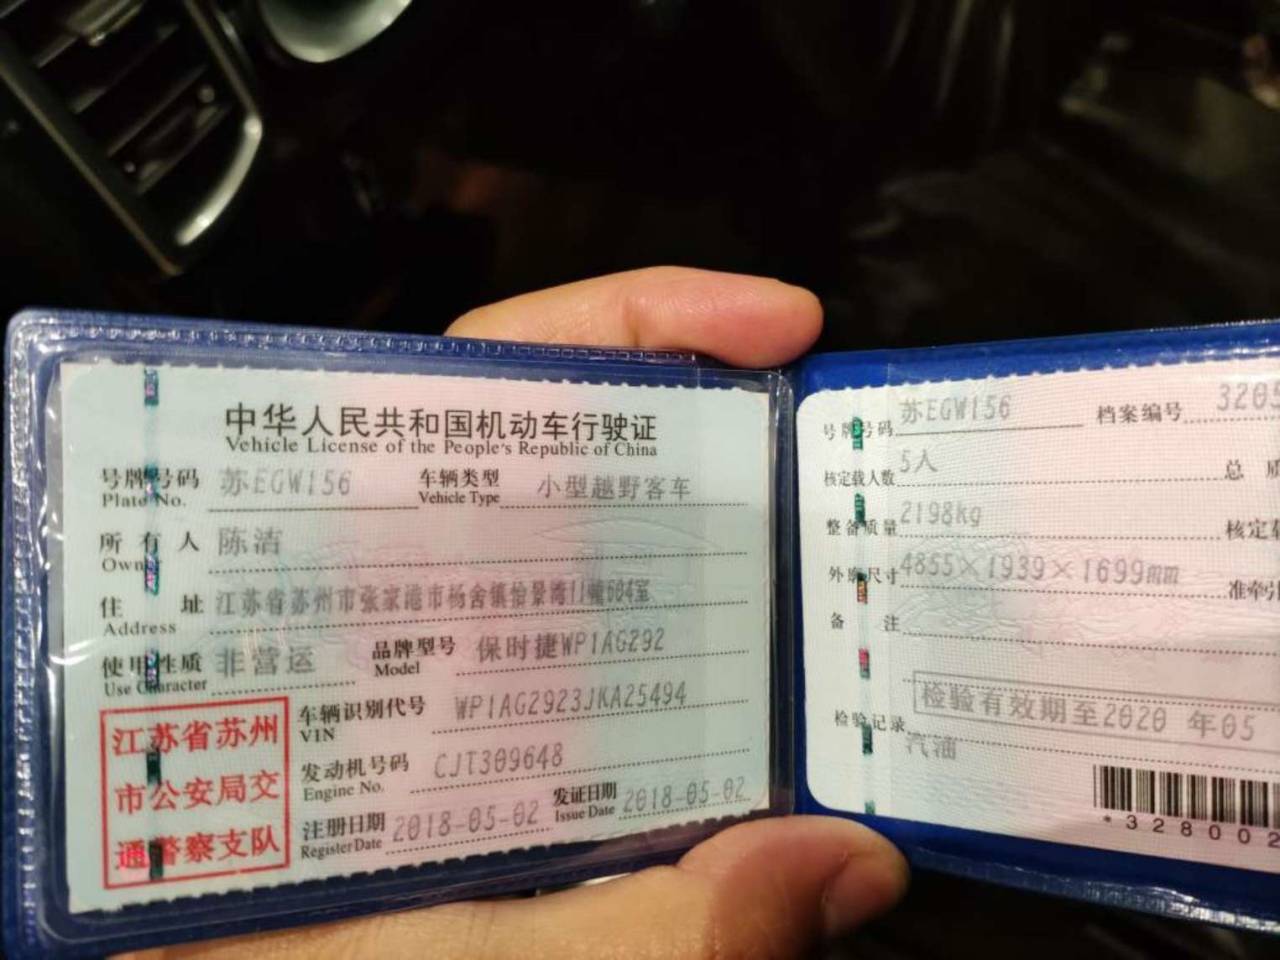 中华人民共和国机动车行驶证
Vehicle License of the People's Republic of China
号牌号码 苏EGW156 车辆类型 小型越野客车
Plate No. Vehicle Type
所有人 陈洁
Owner
住址 江苏省苏州市张家港市杨舍镇怡景湾11幢604室
Address
使用性质 非营运 品牌型号 保时捷WP1AG292
Use Character Model
车辆识别代号 WP1AG2923JKA25494
VIN
发动机号码 CJT309648
Engine No.
注册日期 2018-05-02 发证日期 2018-05-02
Register Date Issue Date
江苏省苏州
市公安局交
通警察支队
号牌号码 苏EGW156 档案编号 3205
核定载人数 5人 总质
整备质量 2198kg 核定载
外廓尺寸 4855×1939×1699mm 准牵引
备注
检验有效期至2020 年05
检验记录
汽油
*328002